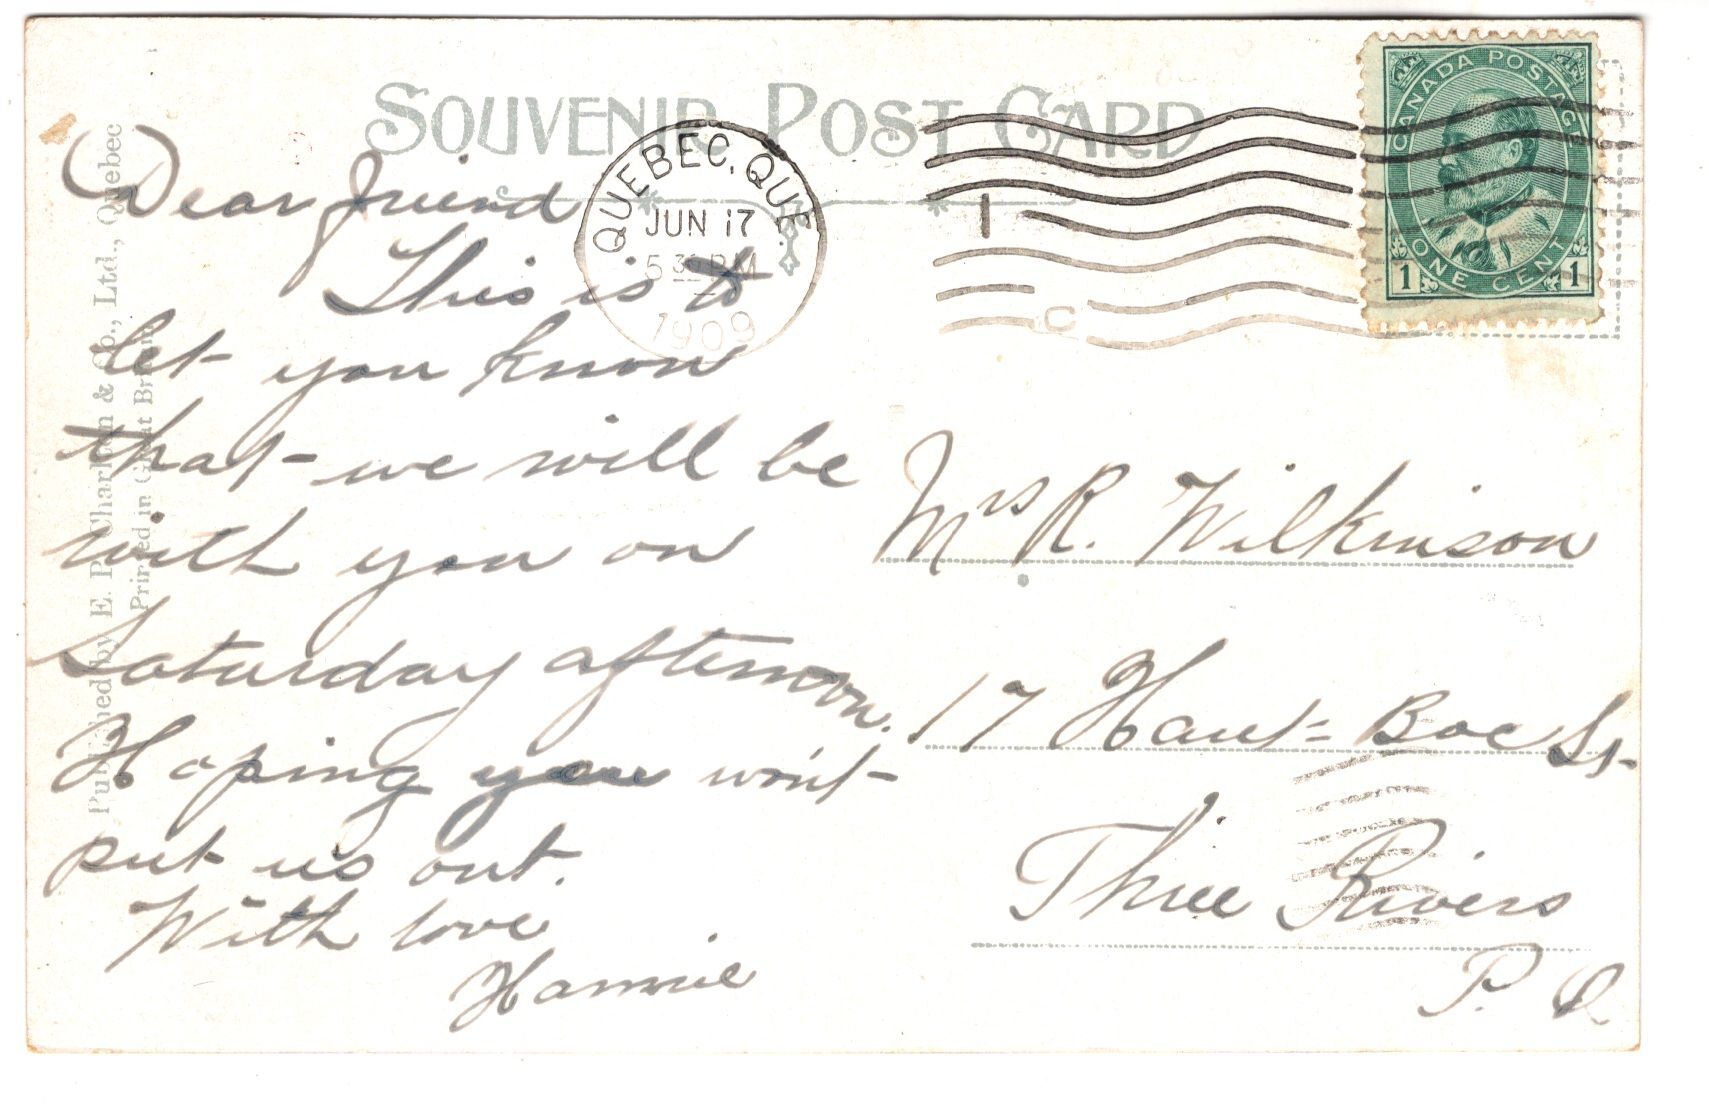 SOUVENIR POST CARD
QUEBEC, QUE.
JUN 17
5 30 PM
1909
1
C
CANADA POSTAGE
ONE CENT
1 1
Dear friend
This is to
let you know
that we will be
with you on
Saturday afternoon.
Hoping you won't
put us out.
With love
Hannie
Mrs R. Wilkinson
17 Haut-Boc St
Three Rivers
P. Q
Published by E. P. Charlton & Co., Ltd., Quebec
Printed in Great Britain